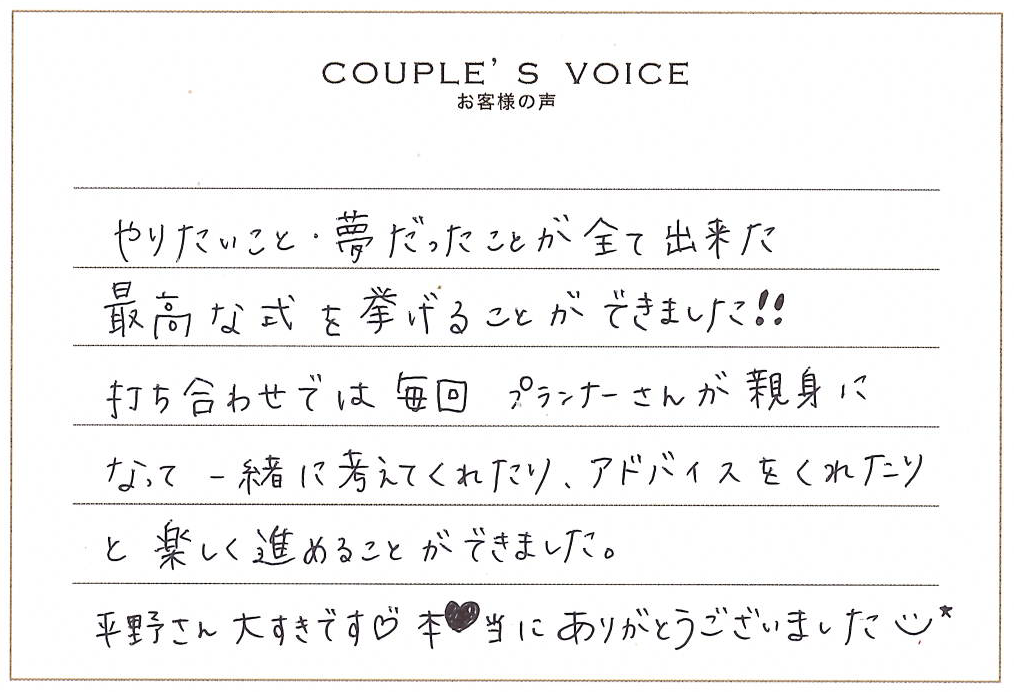 COUPLE'S VOICE
お客様の声
やりたいこと・夢だったことが全て出来た
最高な式を挙げることができました!!
打ち合わせでは毎回 プランナーさんが親身に
なって一緒に考えてくれたり、アドバイスをくれたり
と楽しく進めることができました。
平野さん大すきです♡本♥当にありがとうございました